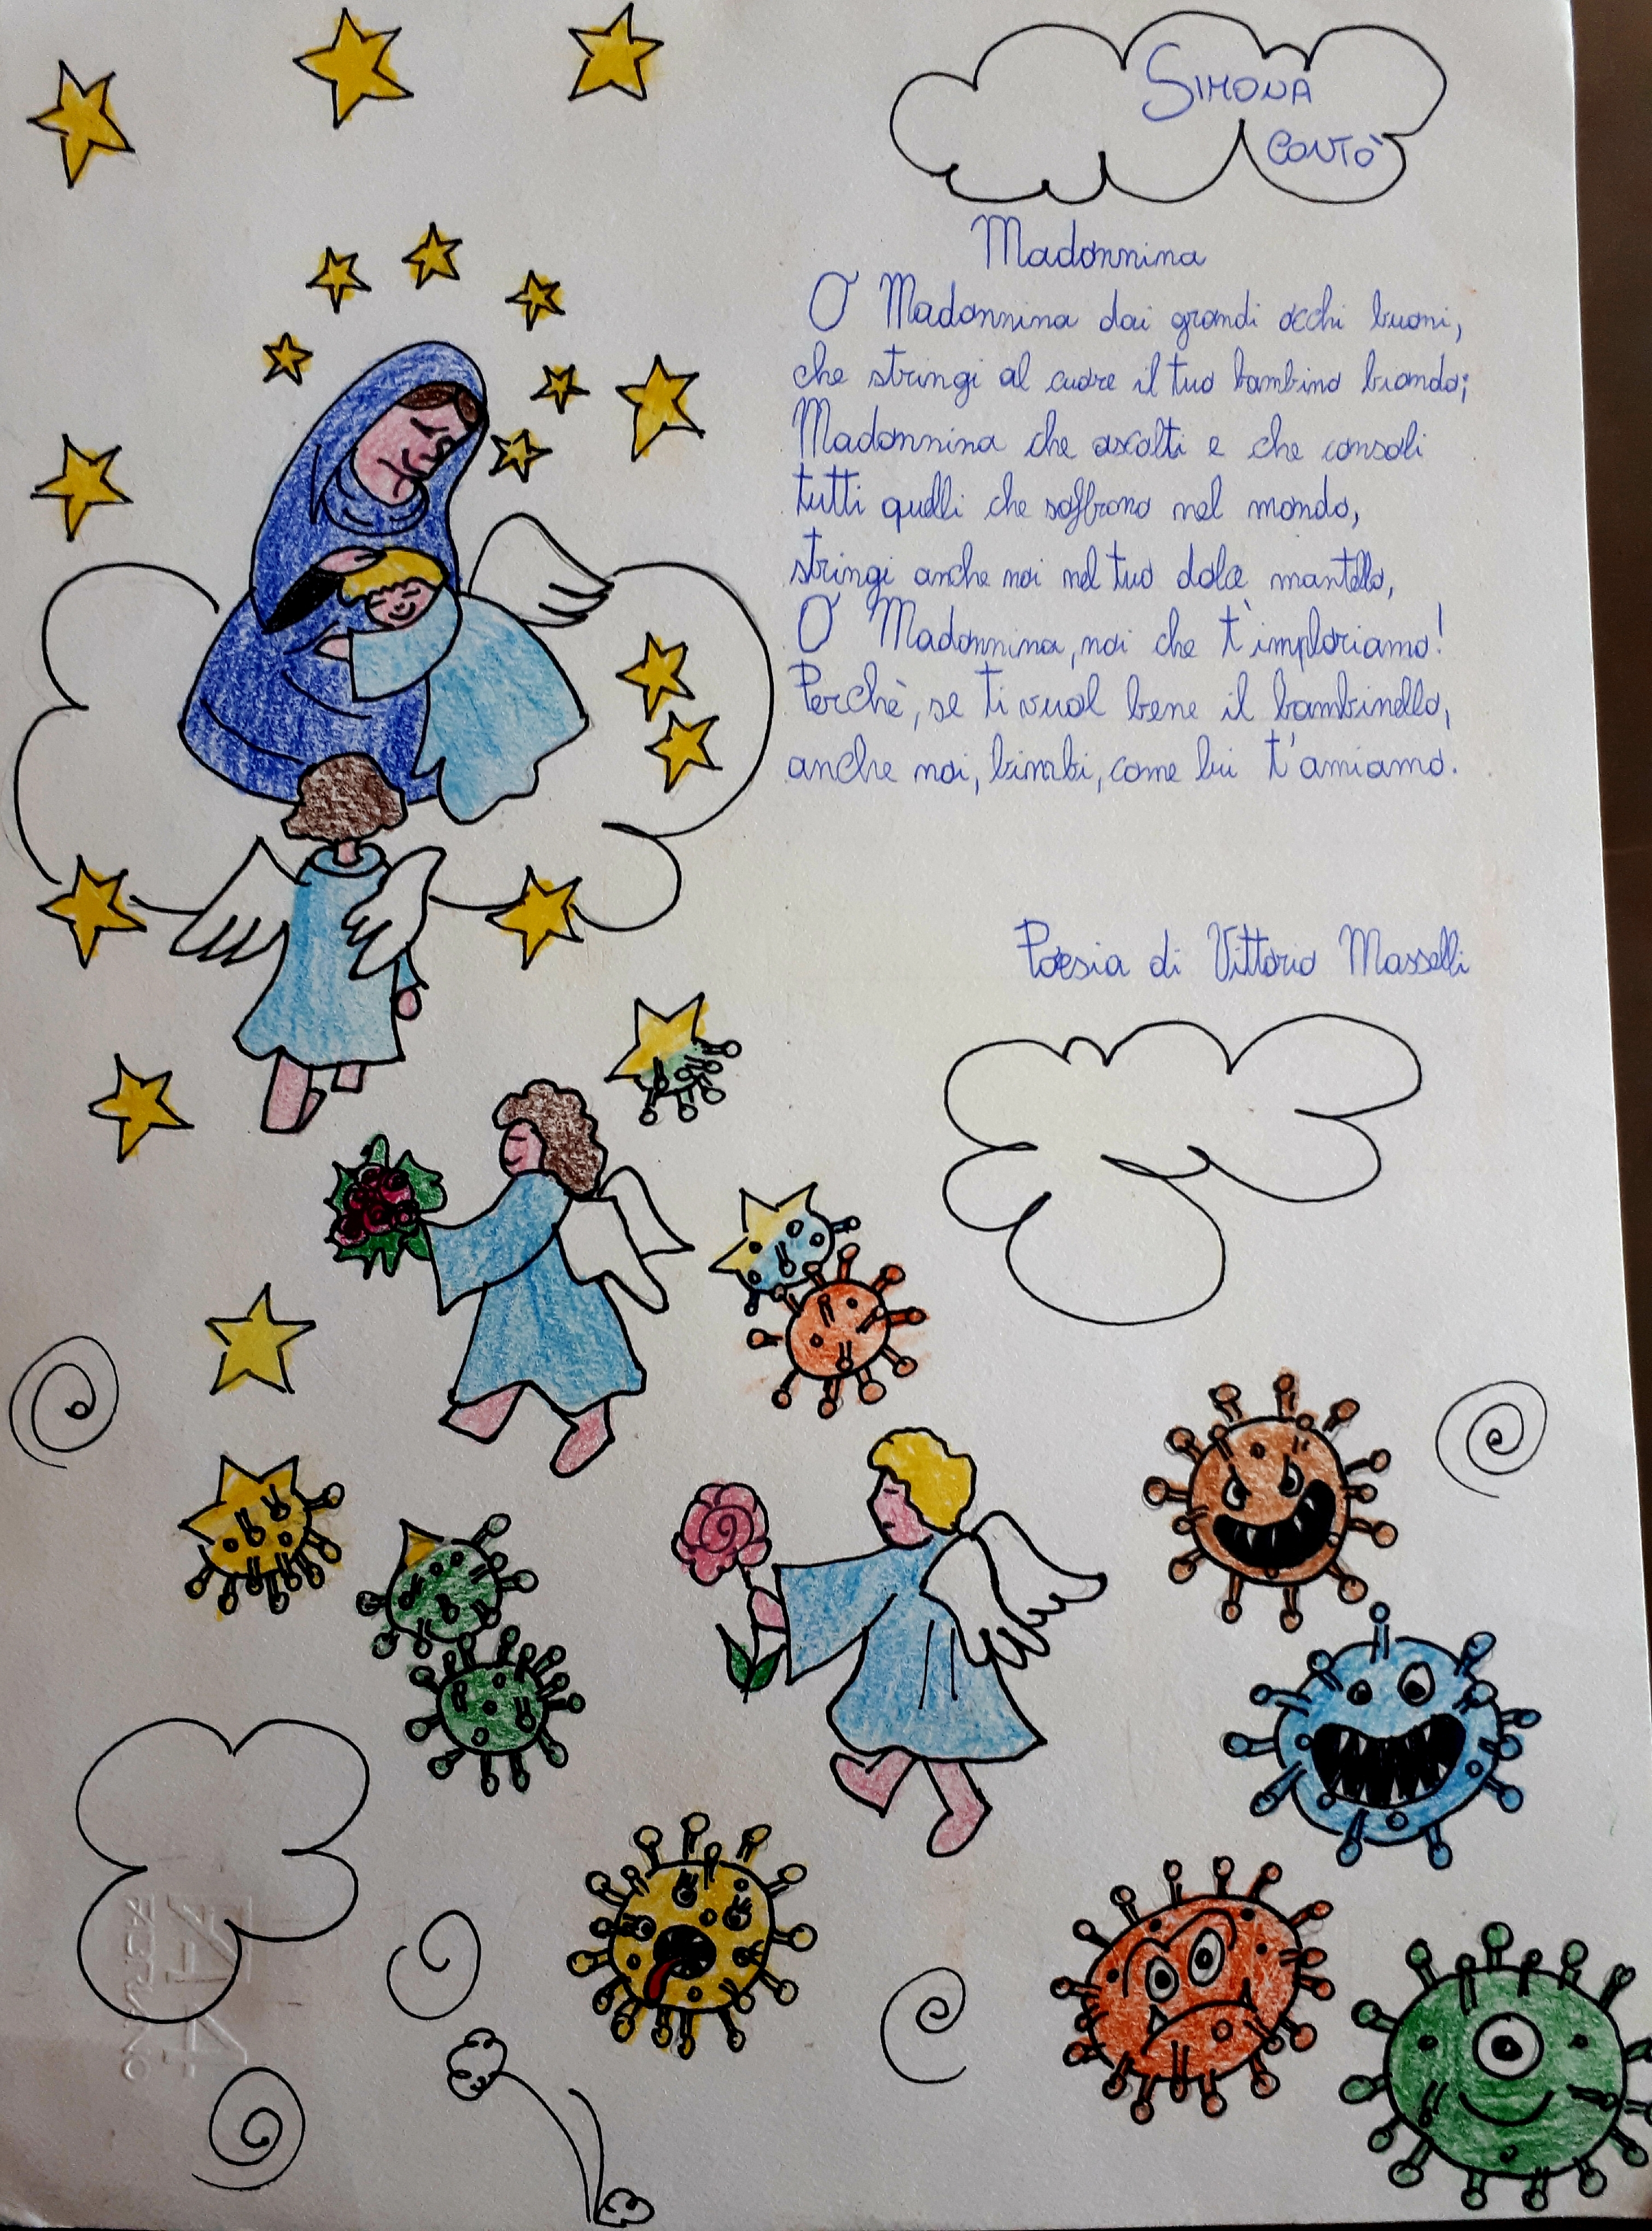 SIMONA
CONTÒ
Madonnina
O Madonnina dai grandi occhi buoni,
che stringi al cuore il tuo bambino biondo;
Madonnina che ascolti e che consoli
tutti quelli che soffrono nel mondo,
stringi anche noi nel tuo dolce mantello,
O Madonnina, noi che t'imploriamo!
Perchè, se ti vuol bene il bambinello,
anche noi, bimbi, come lui t'amiamo.
Poesia di Vittorio Masselli
F4
FABRIANO